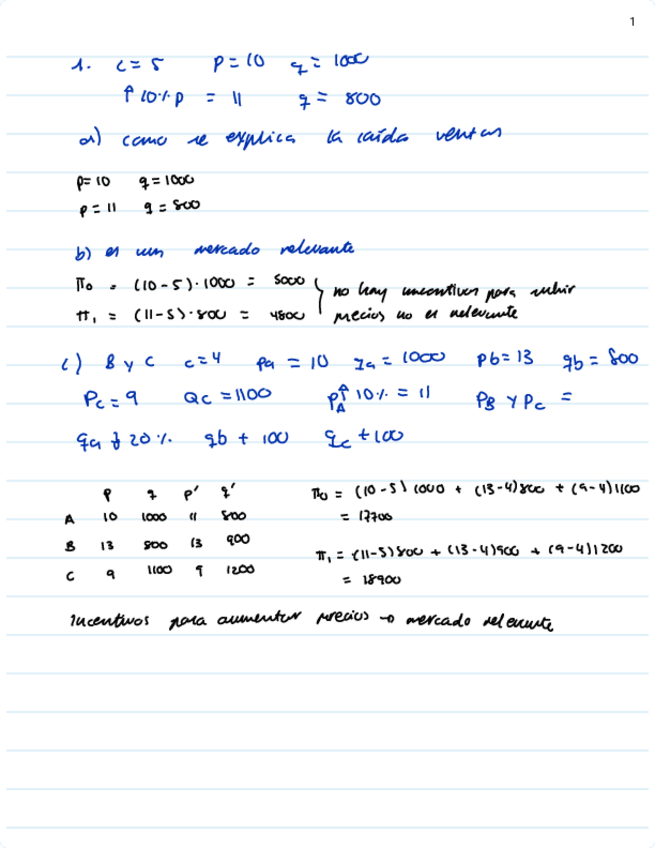 1
1. c = 5 p = 10 q = 1000
↑ 10% p = 11 q = 800
a) como se explica la caída ventas
p = 10 q = 1000
p = 11 q = 800
b) es un mercado relevante
π0 = (10-5)·1000 = 5000
π1 = (11-5)·800 = 4800
no hay incentivos para subir
precios no es relevante
c) B y C c = 4 Pa = 10 qa = 1000 Pb = 13 qb = 800
Pc = 9 Qc = 1100 PA ↑ 10% = 11 PB y Pc =
qa ↓ 20% qb + 100 qc + 100
p q p' q'
A 10 1000 11 800
B 13 800 13 900
C 9 1100 9 1200
π0 = (10-5) 1000 + (13-4) 800 + (9-4) 1100
= 17700
π1 = (11-5) 800 + (13-4) 900 + (9-4) 1200
= 18900
Incentivos para aumentar precios → mercado relevante